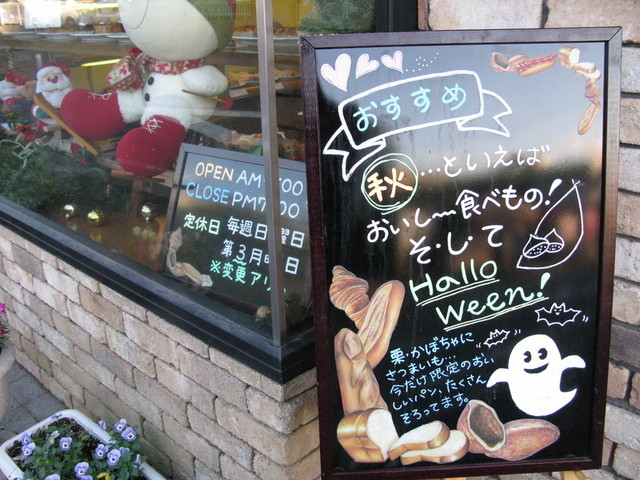 おすすめ
秋…といえば
おいし〜食べもの!
そ・し・て
Hallo
ween!
栗・かぼちゃに
さつまいも…
今だけ限定のおい
しいパン、たくさん
そろってます。
OPEN AM
CLOSE PM7:00
定休日 毎週日曜日
第3月曜日
※変更アリ